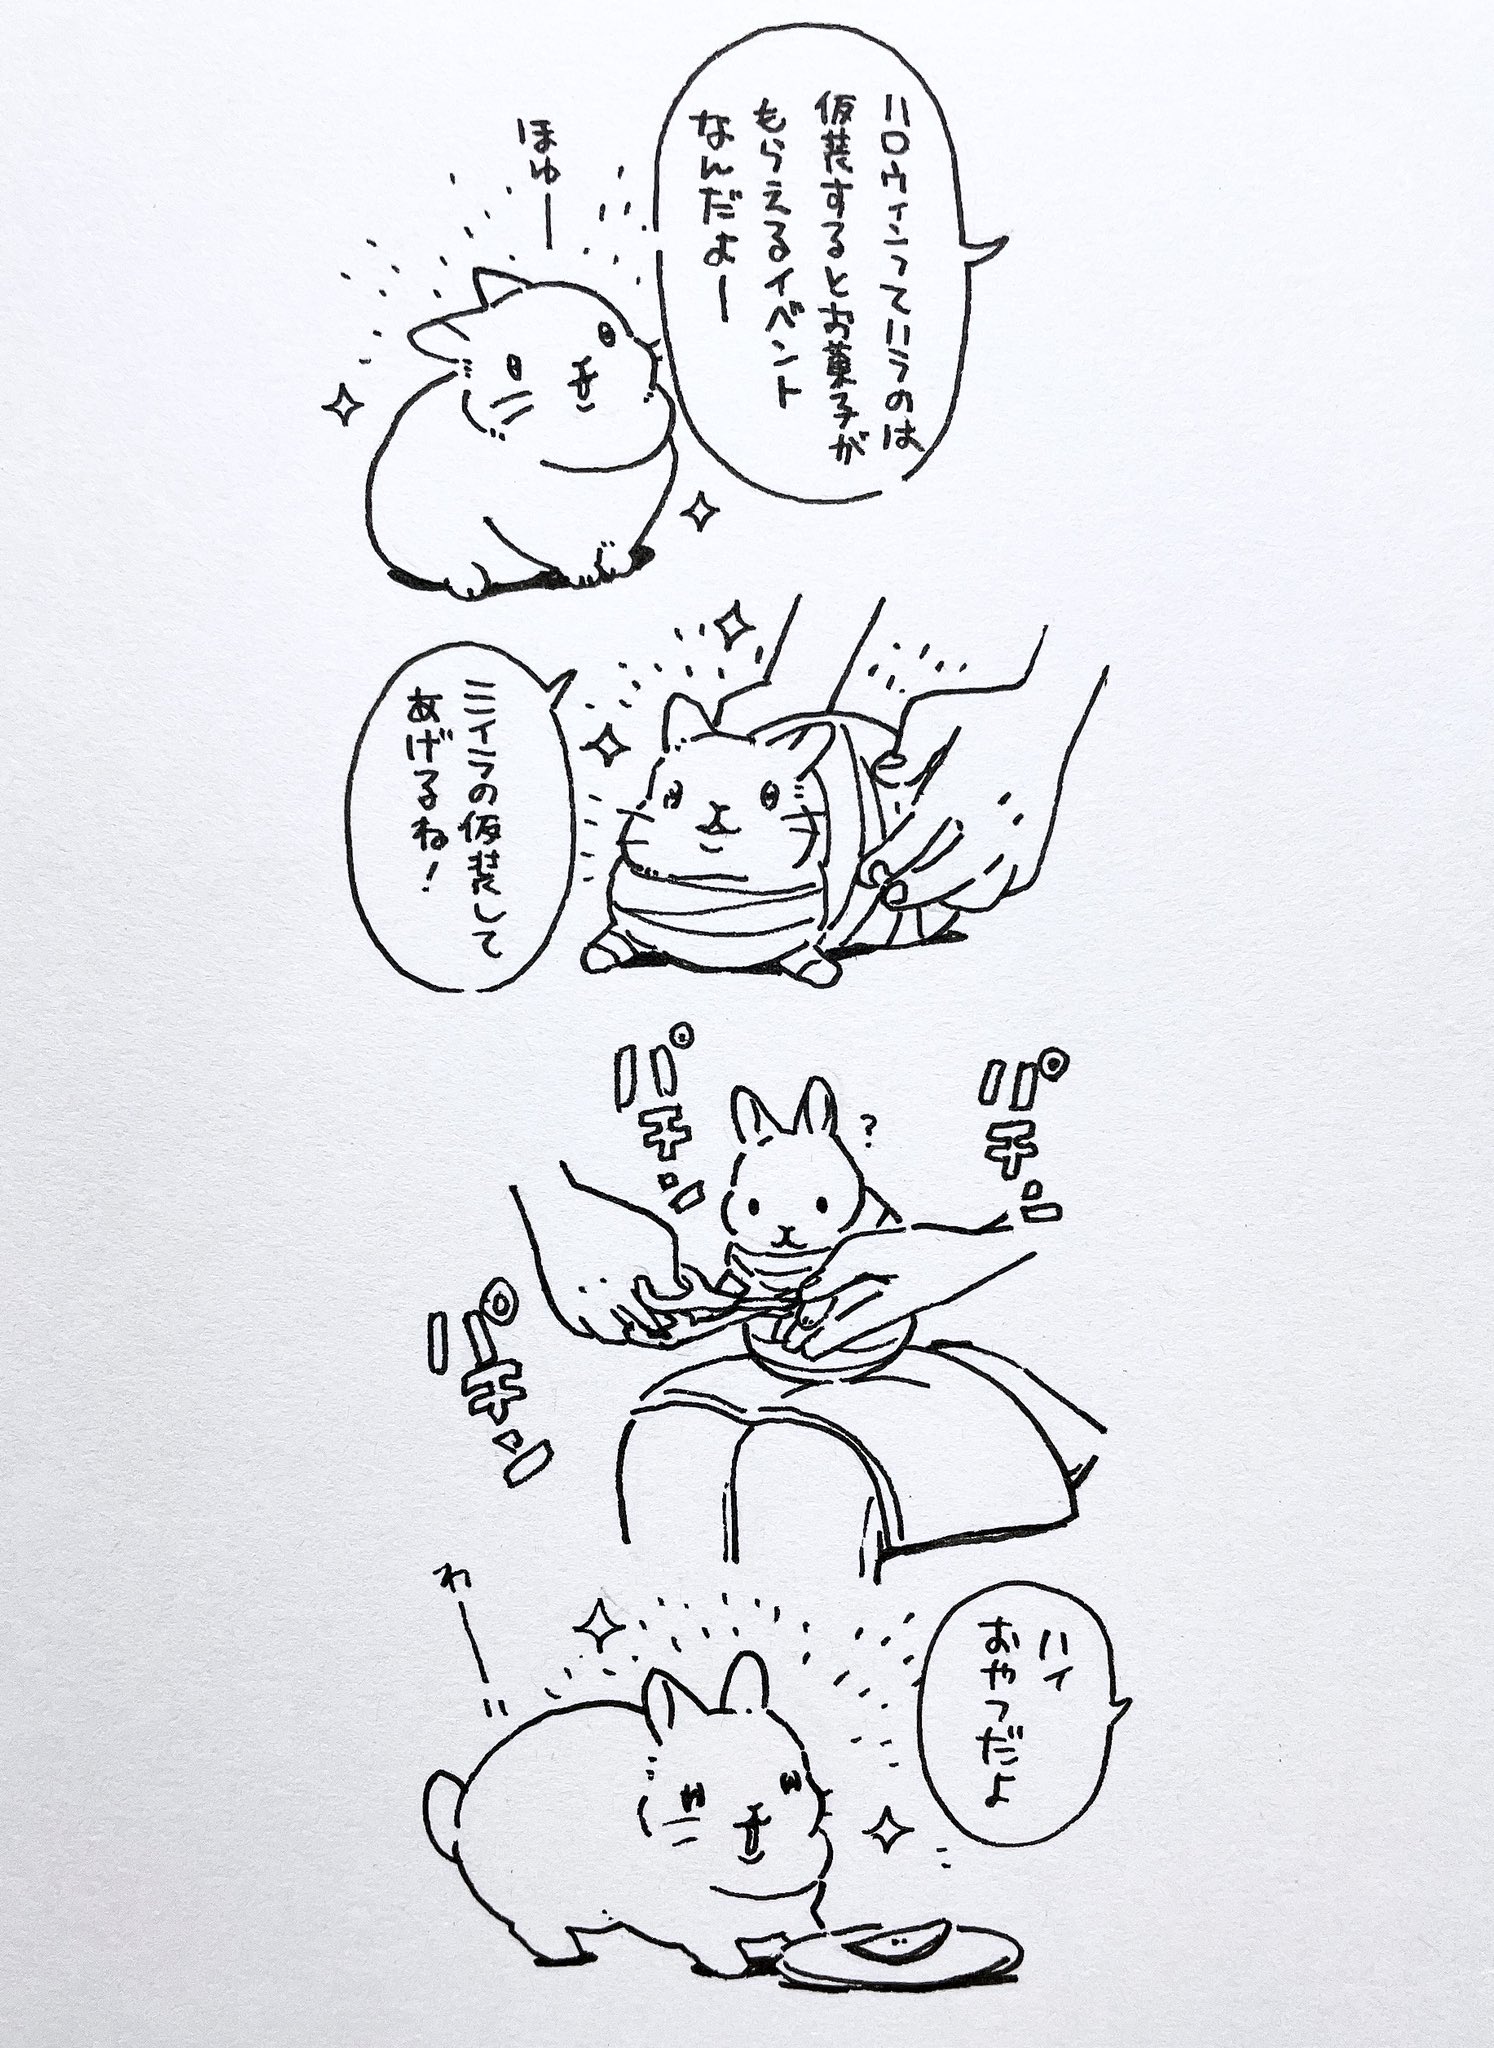 ハロウィンっていうのは
仮装するとお菓子が
もらえるイベント
なんだよー
ほゆー
ミイラの仮装して
あげるね!
パチン
?
パチン
パチン
ハイ
おやつだよ
わーーい